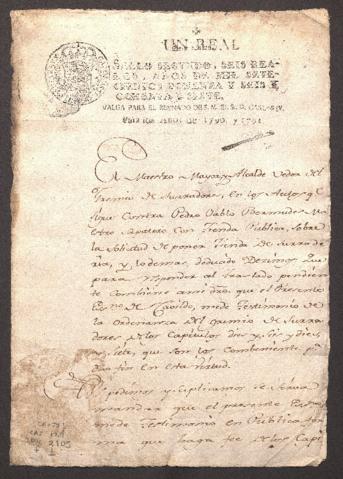 UN REAL
SELLO SEGUNDO, SEIS REA-
LES, AÑOS DE MIL SETE-
CIENTOS OCHENTA Y SEIS Y
OCHENTA Y SIETE.
VALGA PARA EL REYNADO DE S. M. EL S. D. CARL. IV.
Para los Años de 1790. y 1791.
El Maestro Mayor, y Alcalde Vedor del
Gremio de Surradores, en los Autos q
sigue Contra Pedro Pablo Bermudes Ma
estro Sapatero con Tienda Publica, sobre
la Solicitud de poner Tienda de Surra du
ria, y lo demas deducido Desimos Que
para responder al traslado pendien
te Combiene a mi dro. que el Presente
Esno. de Cavildo, me de Testimonio de
la Ordenanza del Gremio de Surra
dores, y los Capitulos dies y seis y dies,
y siete, que son los combenientes p
en esta virtud.
A V pedimos y suplicamos se sirva
mandar que el presente Esno.
me de testimonio en Publica for
ma que haga fee de los Capi